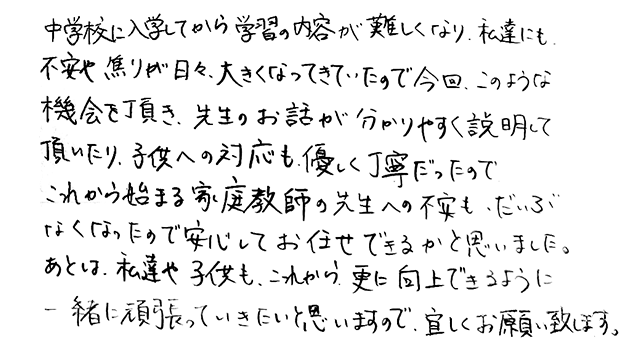 中学校に入学してから学習の内容が難しくなり、私達にも、
不安や焦りが日々、大きくなってきていたので今回、このような
機会を頂き、先生のお話が分かりやすく説明して
頂いたり、子供への対応も、優しく丁寧だったので
これから始まる家庭教師の先生への不安も、だいぶ
なくなったので安心してお任せできるかと思いました。
あとは、私達や子供も、これから、更に向上できるように
一緒に頑張っていきたいと思いますので、宜しくお願い致します。